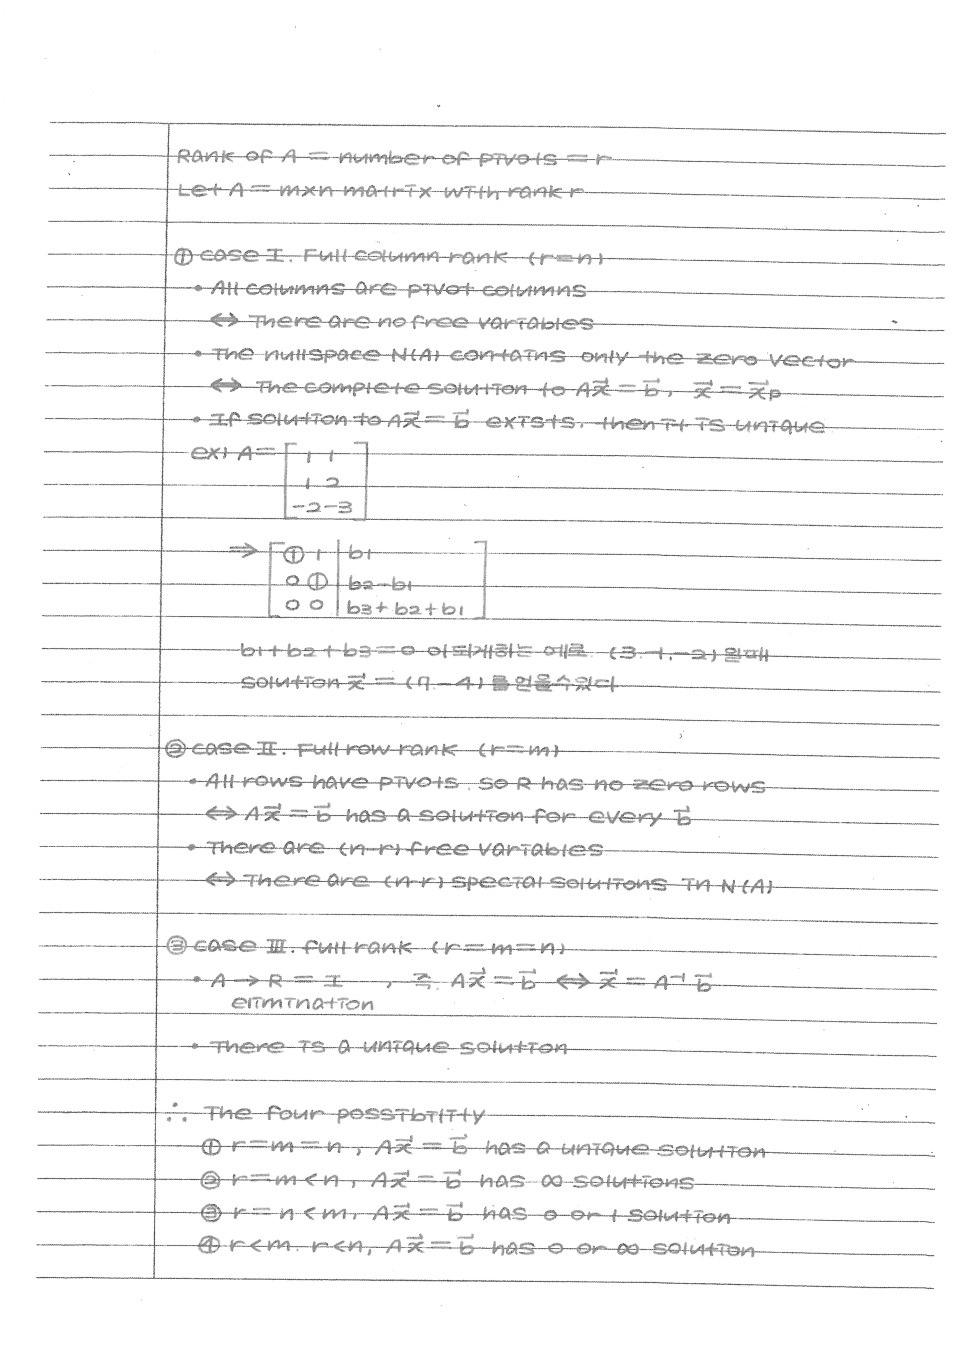 Rank of A = number of pivots = r
Let A = m×n matrix with rank r
① case I. Full column rank (r=n)
• All columns are pivot columns
⇔ There are no free variables
• The nullspace N(A) contains only the zero vector
⇔ The complete solution to Ax⃗ = b⃗, x⃗ = x⃗p
• If solution to Ax⃗ = b⃗ exists, then it is unique
ex) A = [ 1 1
1 2
-2 -3 ]
⇒ [ ① 1 | b1
0 ① | b2-b1
0 0 | b3+b2+b1 ]
b1+b2+b3=0 이되게하는 예로 (3,-1,-2)일때
solution x⃗ = (7,-4)를얻을수있다
② case II. Full row rank (r=m)
• All rows have pivots, so R has no zero rows
⇔ Ax⃗ = b⃗ has a solution for every b⃗
• There are (n-r) free variables
⇔ There are (n-r) special solutions in N(A)
③ case III. full rank (r=m=n)
• A → R = I , 즉, Ax⃗ = b⃗ ⇔ x⃗ = A⁻¹ b⃗
elimination
• There is a unique solution
∴ The four possibility
① r=m=n, Ax⃗ = b⃗ has a unique solution
② r=m<n, Ax⃗ = b⃗ has ∞ solutions
③ r=n<m, Ax⃗ = b⃗ has 0 or 1 solution
④ r<m, r<n, Ax⃗ = b⃗ has 0 or ∞ solution